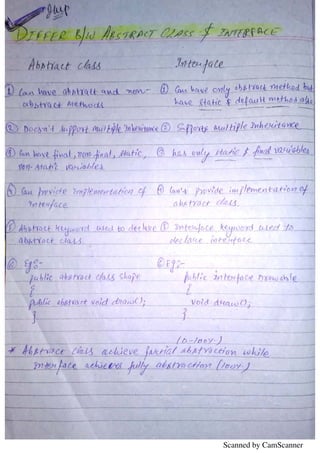 Imp
DIFFER B/W ABSTRACT CLASS & INTERFACE
Abstract class
Interface
① Can have abstract and non-
abstract methods
① Can have only abstract method but
have static & default methods also
② Doesn't support multiple inheritance
② Supports multiple inheritance
③ Can have final, non-final, static,
non-static variables
③ has only static & final variables
④ Can provide implementation of
interface
④ Can't provide implementation of
abstract class.
⑤ Abstract keyword used to declare
abstract class
⑤ Interface keyword used to
declare interface
⑥ Eg:-
public abstract class Shape
{
public abstract void draw();
}
⑥ Eg:-
public interface Drawable
{
void draw();
}
(0-100%)
* Abstract class achieve partial abstraction while
interface achieves fully abstraction (100%)
Scanned by CamScanner